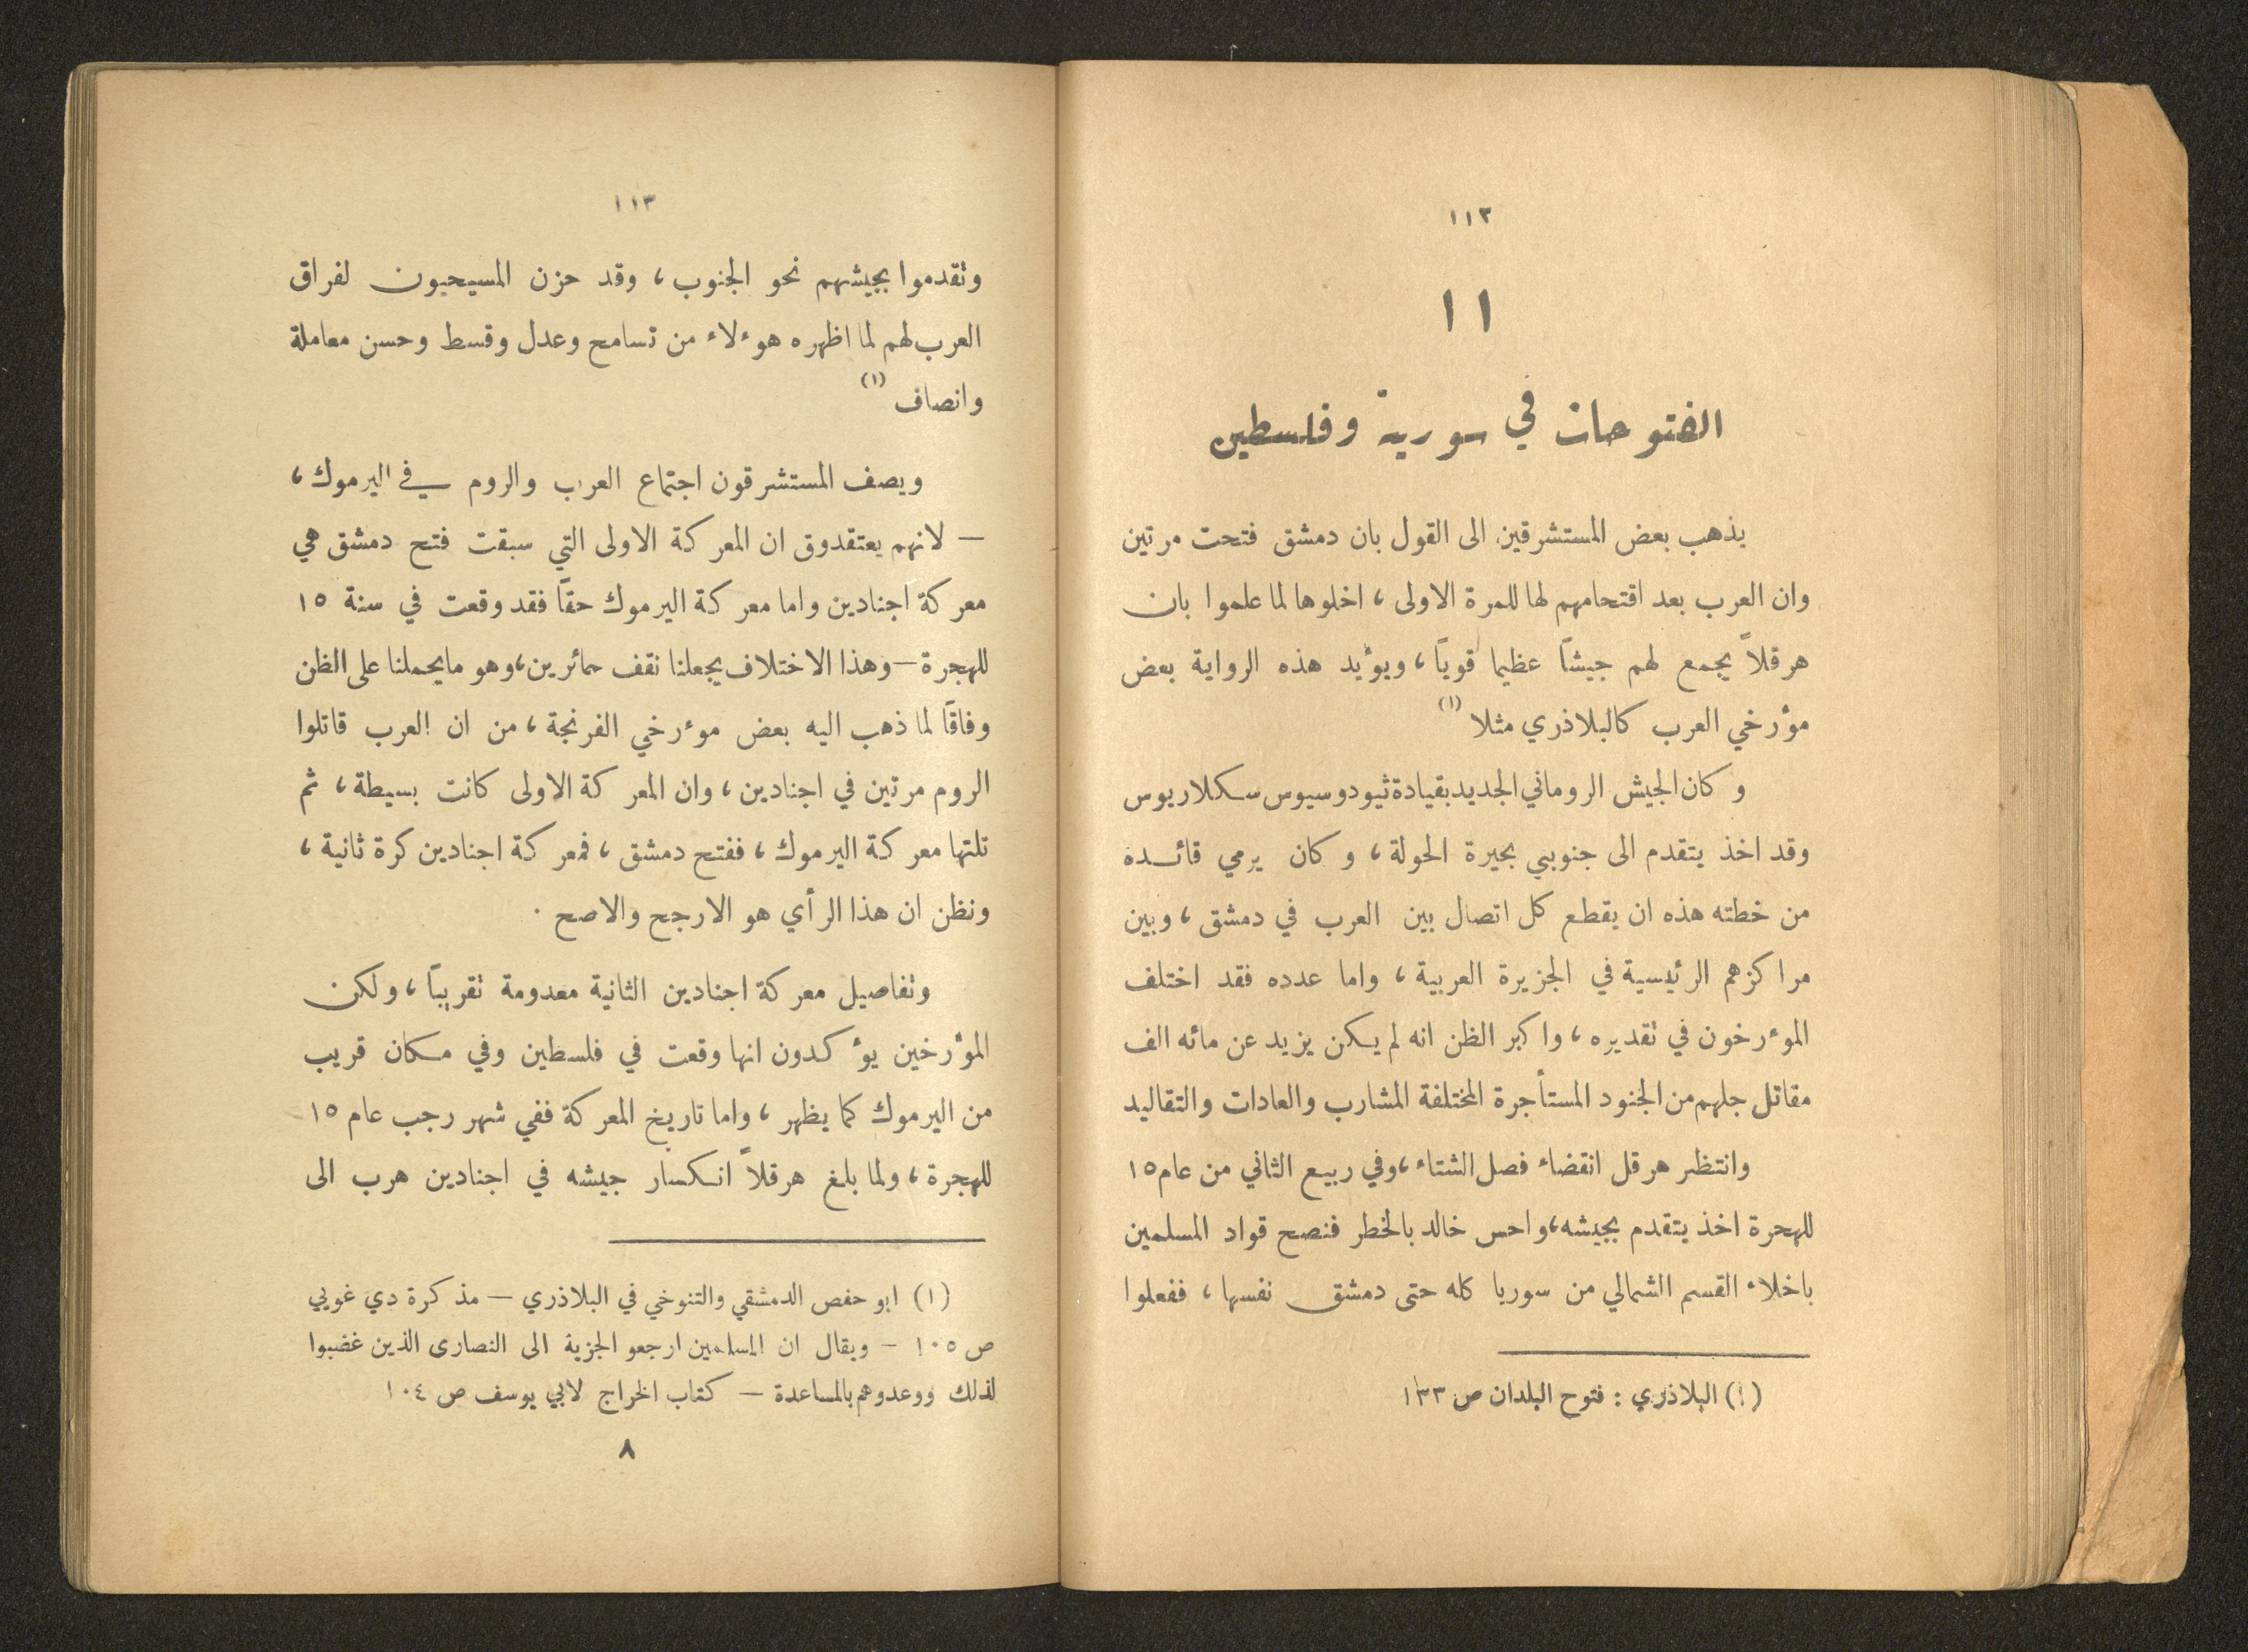 ١١٢
١١
الفتوحات في سورية وفلسطين
يذهب بعض المستشرقين الى القول بان دمشق فتحت مرتين
وان العرب بعد اقتحامهم لها للمرة الاولى ، اخلوها لما علموا بان
هرقلاً يجمع لهم جيشاً عظيما قوياً ، ويؤيد هذه الرواية بعض
مؤرخي العرب كالبلاذري مثلا (١)
وكان الجيش الروماني الجديد بقيادة ثيودوسيوس سكلاريوس
وقد اخذ يتقدم الى جنوبي بحيرة الحولة ، وكان يرمي قائده
من خطته هذه ان يقطع كل اتصال بين العرب في دمشق ، وبين
مراكزهم الرئيسية في الجزيرة العربية ، واما عدده فقد اختلف
الموءرخون في تقديره ، واكبر الظن انه لم يكن يزيد عن مائه الف
مقاتل جلهم من الجنود المستأجرة المختلفة المشارب والعادات والتقاليد
وانتظر هرقل انقضاء فصل الشتاء ، وفي ربيع الثاني من عام ١٥
للهجرة اخذ يتقدم بجيشه ، واحس خالد بالخطر فنصح قواد المسلمين
باخلاء القسم الشمالي من سوريا كله حتى دمشق نفسها ، ففعلوا
(١) البلاذري : فتوح البلدان ص ١٣٣
١١٣
وتقدموا بجيشهم نحو الجنوب ، وقد حزن المسيحيون لفراق
العرب لهم لما اظهره هوءلاء من تسامح وعدل وقسط وحسن معاملة
وانصاف (١)
ويصف المستشرقون اجتماع العرب والروم في اليرموك ،
— لانهم يعتقدوق ان المعركة الاولى التي سبقت فتح دمشق هي
معركة اجنادين واما معركة اليرموك حقاً فقد وقعت في سنة ١٥
للهجرة — وهذا الاختلاف يجعلنا نقف حائرين ، وهو مايحملنا على الظن
وفاقاً لما ذهب اليه بعض موءرخي الفرنجة ، من ان العرب قاتلوا
الروم مرتين في اجنادين ، وان المعركة الاولى كانت بسيطة ، ثم
تلتها معركة اليرموك ، ففتح دمشق ، فمعركة اجنادين كرة ثانية ،
ونظن ان هذا الرأي هو الارجح والاصح .
وتفاصيل معركة اجنادين الثانية معدومة تقريباً ، ولكن
المؤرخين يوءكدون انها وقعت في فلسطين وفي مكان قريب
من اليرموك كما يظهر ، واما تاريخ المعركة ففي شهر رجب عام ١٥
للهجرة ، ولما بلغ هرقلاً انكسار جيشه في اجنادين هرب الى
(١) ابو حفص الدمشقي والتنوخي في البلاذري — مذكرة دي غويي
ص ١٠٥ - ويقال ان المسلمين ارجعو الجزية الى النصارى الذين غضبوا
لذلك ووعدوهم بالمساعدة — كتاب الخراج لابي يوسف ص ١٠٤
٨